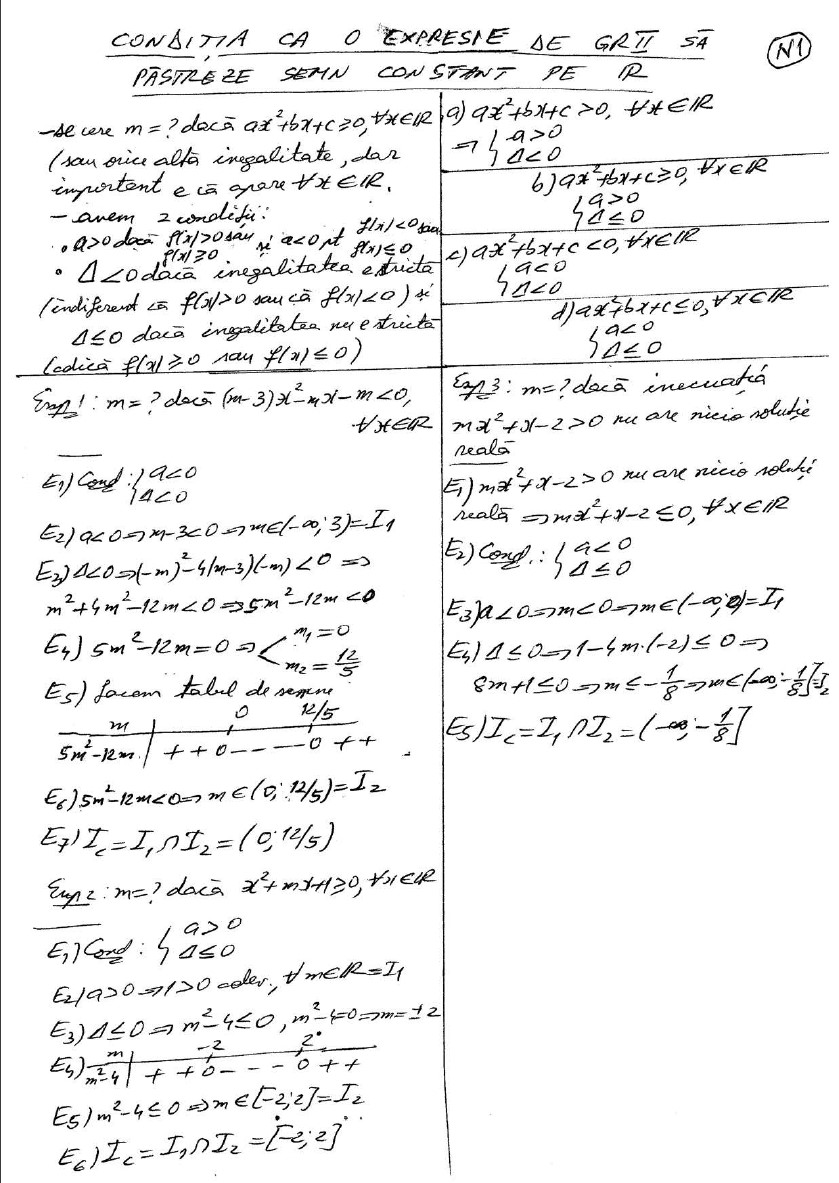 CONDIȚIA CA O EXPRESIE DE GR II SĂ
PĂSTREZE SEMN CONSTANT PE ℝ
N1
- se cere m = ? dacă ax²+bx+c ≥ 0, ∀x∈ℝ
(sau orice altă inegalitate, dar
important e că apare ∀x∈ℝ.
- avem 2 condiții:
• a>0 dacă f(x)>0 sau f(x)≥0 și a<0 pt f(x)<0 sau f(x)≤0
• Δ<0 dacă inegalitatea e strictă
(indiferent că f(x)>0 sau că f(x)<0) și
Δ≤0 dacă inegalitatea nu e strictă
(adică f(x)≥0 sau f(x)≤0)
a) ax²+bx+c>0, ∀x∈ℝ
⇒ { a>0
Δ<0
b) ax²+bx+c≥0, ∀x∈ℝ
{ a>0
Δ≤0
c) ax²+bx+c<0, ∀x∈ℝ
{ a<0
Δ<0
d) ax²+bx+c≤0, ∀x∈ℝ
{ a<0
Δ≤0
Exp 1: m = ? dacă (m-3)x²-mx-m<0,
∀x∈ℝ
E1) Cond: { a<0
Δ<0
E2) a<0 ⇒ m-3<0 ⇒ m∈(-∞; 3)=I1
E3) Δ<0 ⇒ (-m)²-4(m-3)(-m)<0 ⇒
m²+4m²-12m<0 ⇒ 5m²-12m<0
E4) 5m²-12m=0 ⇒ < m1=0
m2=12/5
E5) facem tabel de semne
m | 0 12/5
5m²-12m | + + 0 - - - - 0 + +
E6) 5m²-12m<0 ⇒ m∈(0; 12/5)=I2
E7) Ic=I1∩I2=(0; 12/5)
Exp 2: m = ? dacă x²+mx+1≥0, ∀x∈ℝ
E1) Cond: { a>0
Δ≤0
E2) a>0 ⇒ 1>0 adev., ∀m∈ℝ=I1
E3) Δ≤0 ⇒ m²-4≤0, m²-4=0 ⇒ m=±2
E4) m | -2 2
m²-4 | + + 0 - - - 0 + +
E5) m²-4≤0 ⇒ m∈[-2; 2]=I2
E6) Ic=I1∩I2=[-2; 2]
Exp 3: m = ? dacă inecuația
mx²+x-2>0 nu are nicio soluție
reală
E1) mx²+x-2>0 nu are nicio soluție
reală ⇒ mx²+x-2≤0, ∀x∈ℝ
E2) Cond.: { a<0
Δ≤0
E3) a<0 ⇒ m<0 ⇒ m∈(-∞; 0)=I1
E4) Δ≤0 ⇒ 1-4m·(-2)≤0 ⇒
8m+1≤0 ⇒ m≤-1/8 ⇒ m∈(-∞; -1/8]=I2
E5) Ic=I1∩I2=(-∞; -1/8]